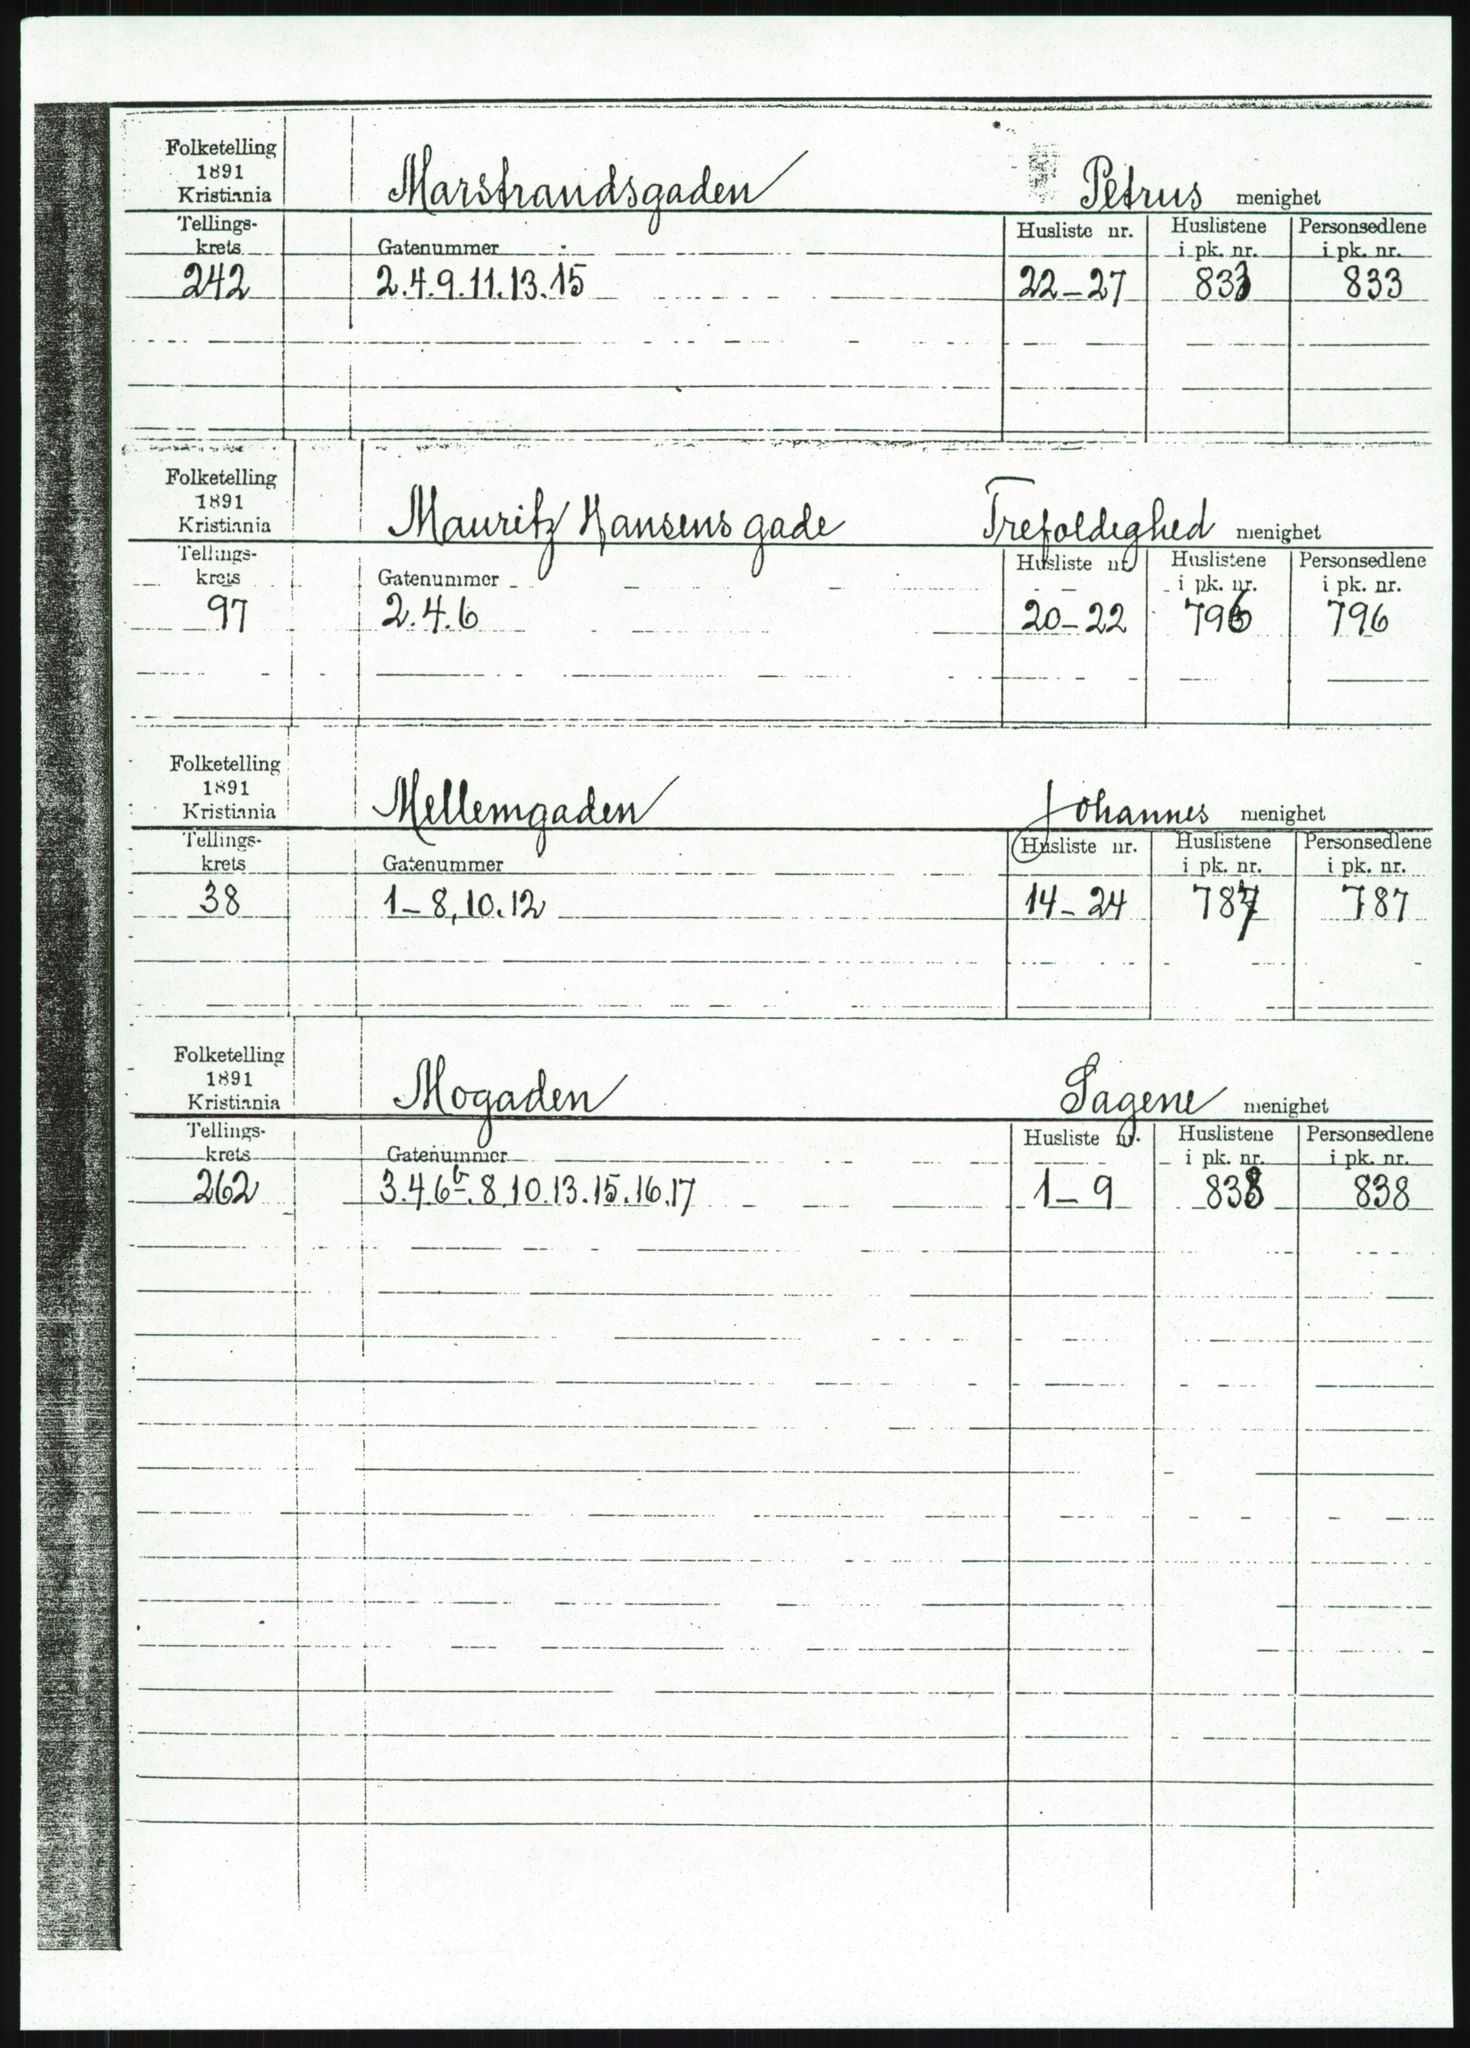 Folketelling
1891
Kristiania Marstrandsgaden Petrus menighet
Tellings-
krets Gatenummer Husliste nr. Huslistene i pk. nr. Personsedlene i pk. nr.
242 2.4.9.11.13.15 22-27 833 833
Folketelling
1891
Kristiania Mauritz Hansens gade Trefoldighed menighet
Tellings-
krets Gatenummer Husliste nr. Huslistene i pk. nr. Personsedlene i pk. nr.
97 2.4.6 20-22 796 796
Folketelling
1891
Kristiania Mellemgaden Johannes menighet
Tellings-
krets Gatenummer Husliste nr. Huslistene i pk. nr. Personsedlene i pk. nr.
38 1-8,10.12 14-24 787 787
Folketelling
1891
Kristiania Mogaden Sagene menighet
Tellings-
krets Gatenummer Husliste nr. Huslistene i pk. nr. Personsedlene i pk. nr.
262 3.4.6b.8.10.13.15.16.17 1-9 838 838